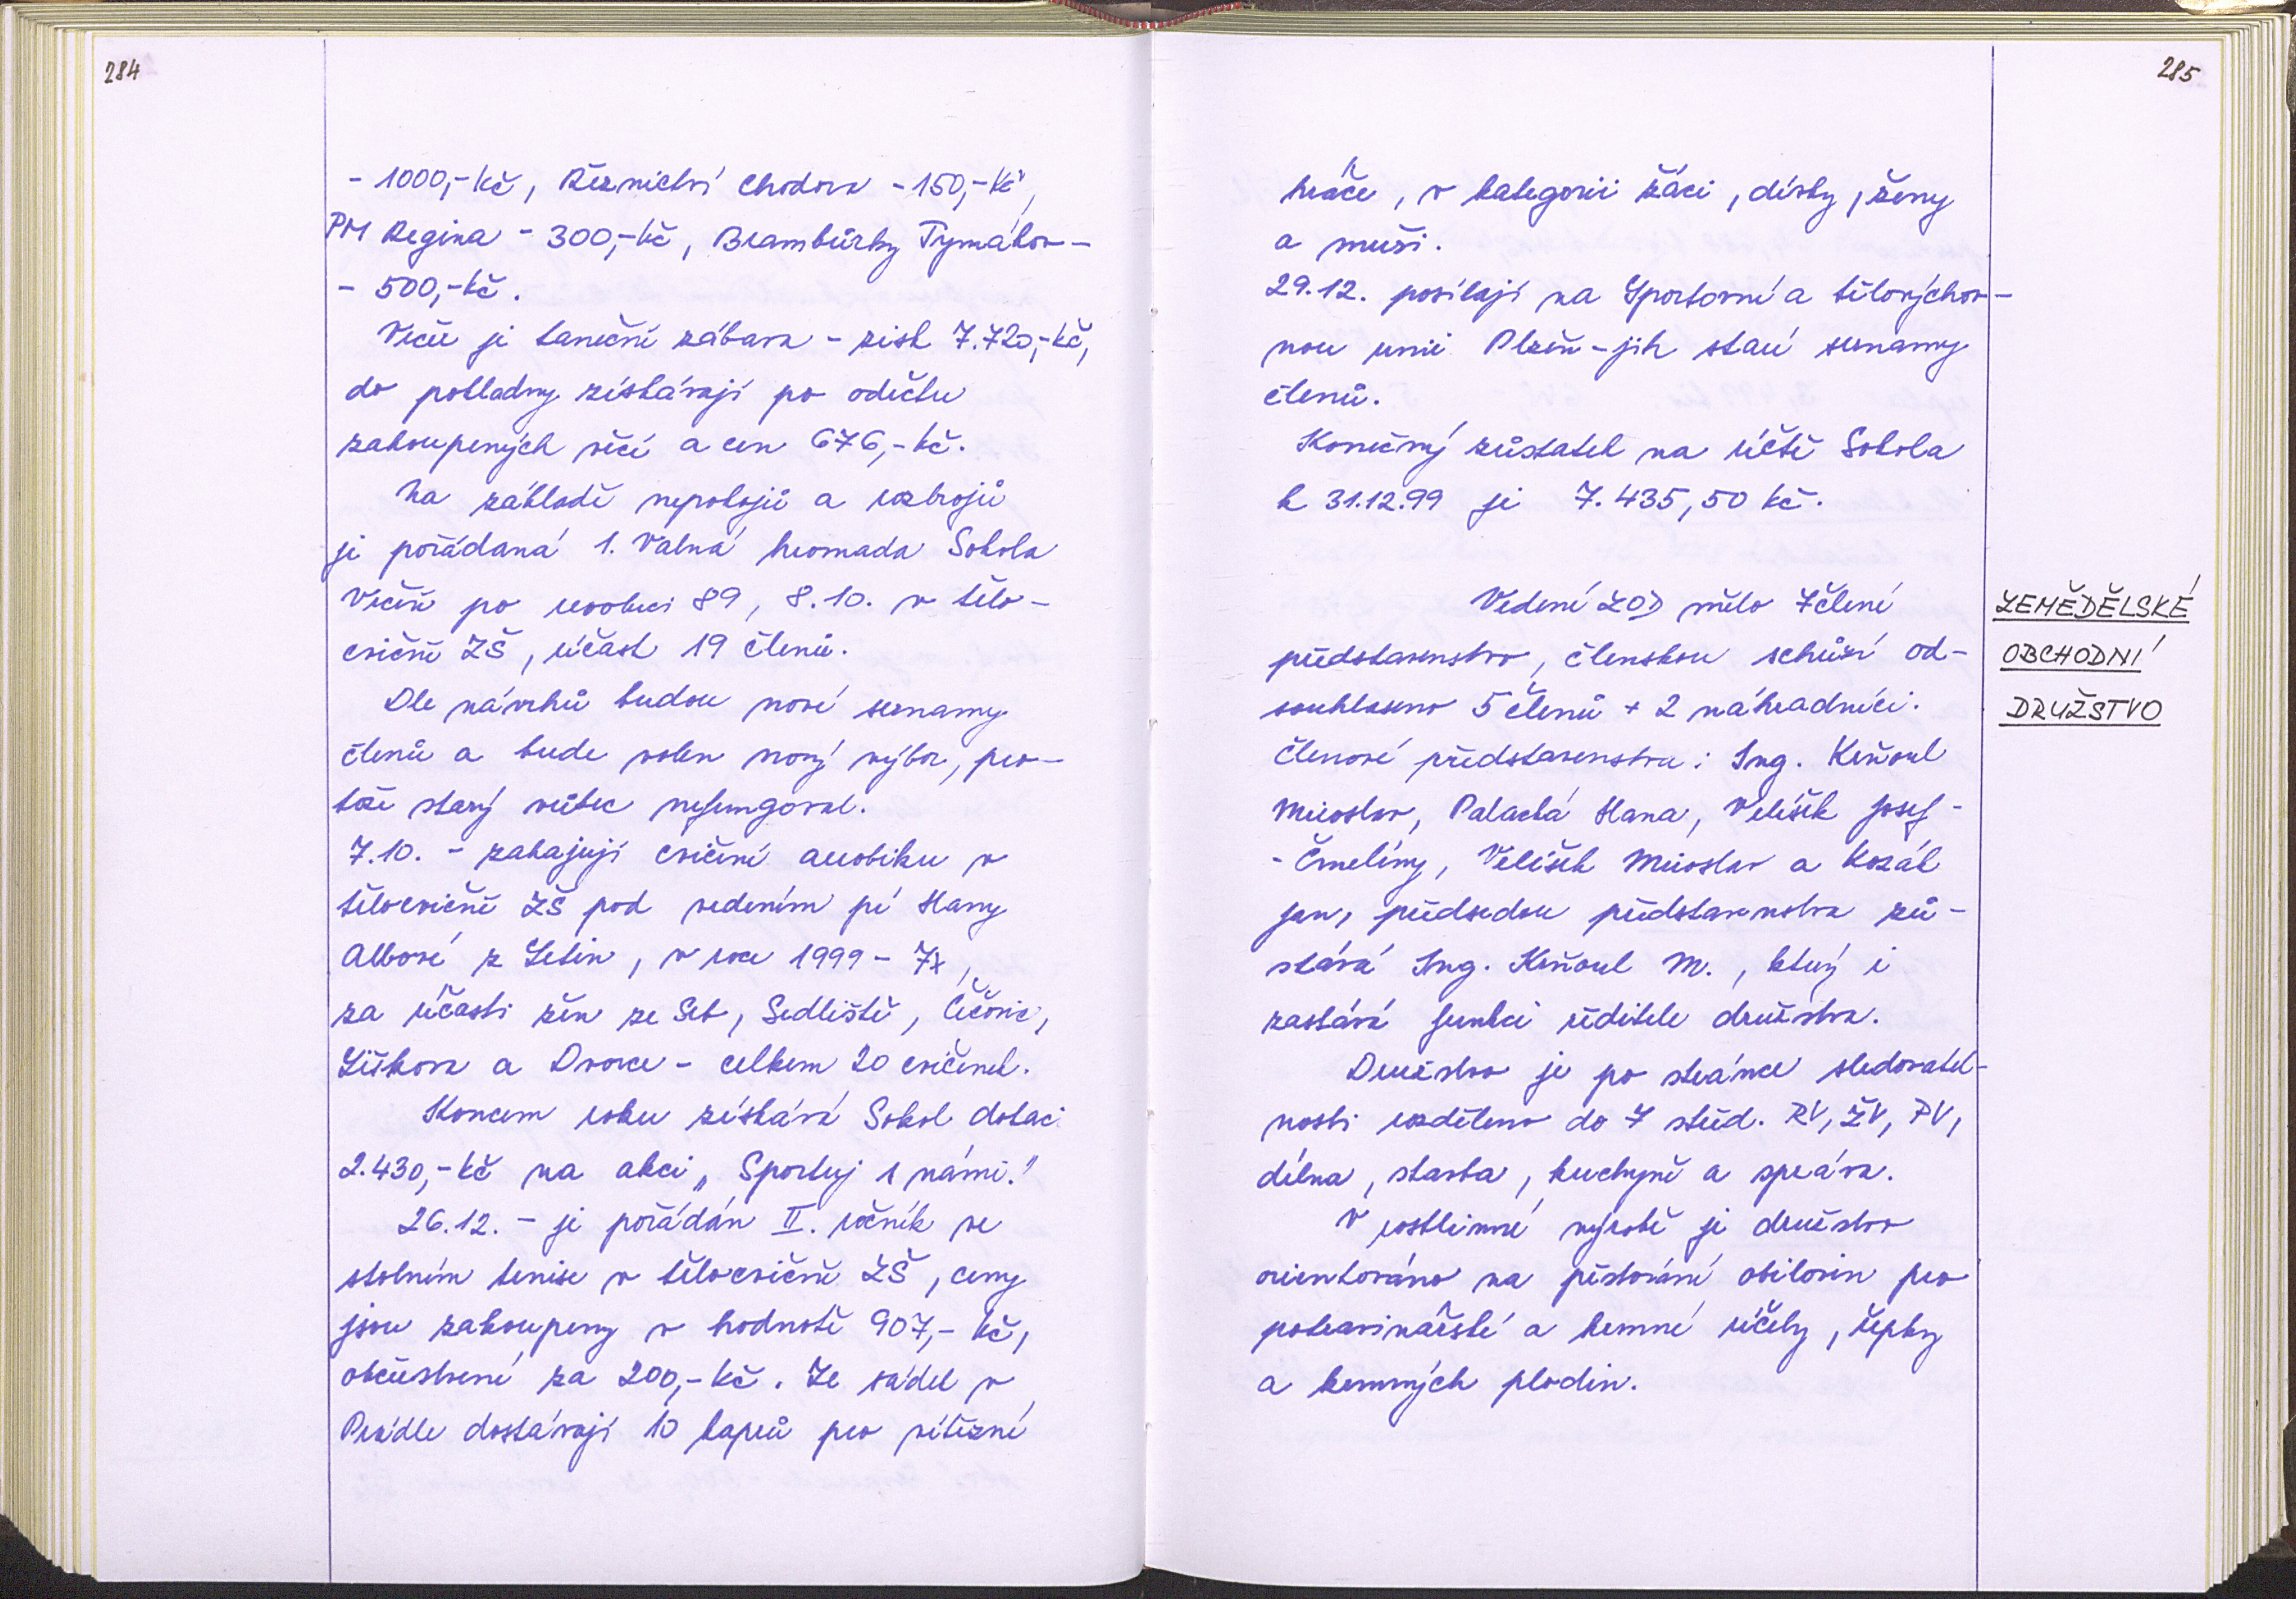 284
- 1000,- Kč, Řeznictví Chodora - 150,- Kč,
PM Regina - 300,- Kč, Brambůrky Tymákov -
- 500,- Kč.
Večer je taneční zábava - zisk 7.720,- Kč,
do pokladny získávají po odečtu
zakoupených věcí a cen 676,- Kč.
Na základě nepokojů a rozbrojů
je pořádaná 1. Valná hromada Sokola
Vrčeň po revoluci 89, 8.10. v tělo-
cvičně ZŠ, účast 19 členů.
Dle návrhů budou nové seznamy
členů a bude volen nový výbor, pro-
tože starý vůbec nefungoval.
7.10. - zahajují cvičení aerobiku v
tělocvičně ZŠ pod vedením pí Hany
Albové z Letin, v roce 1999 - 7x,
za účasti žen ze Seb, Sedliště, Čečovic,
Liškova a Dvorce - celkem 20 cvičenek.
Koncem roku získává Sokol dotaci
2.430,- Kč na akci „Sportuj s námi."
26.12. - je pořádán II. ročník ve
stolním tenise v tělocvičně ZŠ, ceny
jsou zakoupeny v hodnotě 907,- Kč,
občerstvení za 200,- Kč. Ze sádek v
Prádle dostávají 10 kaprů pro vítězné
285
hráče, v kategorii žáci, dívky, ženy
a muži.
29.12. posílají na Sportovní a tělovýchov-
nou unii Plzeň-jih staré seznamy
členů.
Konečný zůstatek na účtě Sokola
k 31.12.99 je 7.435,50 Kč.
ZEMĚDĚLSKÉ
OBCHODNÍ
DRUŽSTVO
Vedení ZOD mělo 7členné
představenstvo, členskou schůzí od-
souhlaseno 5 členů + 2 náhradníci.
Členové představenstva: Ing. Kerňoul
Miroslav, Palacká Hana, Velíšek Josef -
- Čmelíny, Velíšek Miroslav a Kozák
Jan, předsedou představenstva zů-
stává Ing. Kerňoul M., který i
zastává funkci ředitele družstva.
Družstvo je po stránce sledovatel-
nosti rozděleno do 7 střed. RV, ŽV, PV,
dílna, stavba, kuchyně a správa.
V rostlinné výrobě je družstvo
orientováno na pěstování obilovin pro
potravinářské a krmné účely, řepky
a krmných plodin.